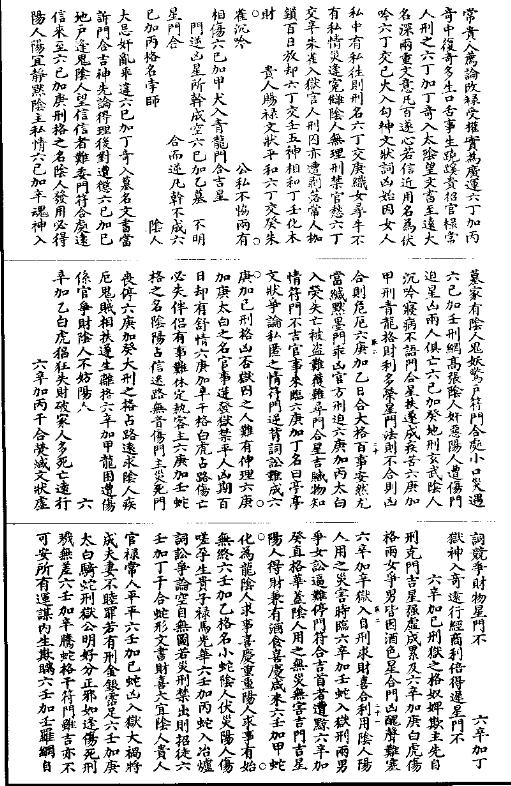 常貴人薦論改祿受權實為慶運六丁加丙
奇中復奇多生口舌事生蹺蹊貴招官祿常
人刑之六丁加丁奇入太陰望文書至遠大
名深兩重文意凡百遂心若信近用名為伏
吟六丁交己火入勾神文狀詞凶始因女人
私中有私往則刑名六丁交庚織女尋牛不
有私情災逢寬赦陰人無理刑禁官愁六丁
交辛朱雀入獄官人刑因亦遭剥落常人枷
鎖百日放却六丁交壬五神相和丁壬化木
財 貴人賜祿文狀平和六丁交癸朱
雀沉吟 公私不協兩有
相傷六己加甲犬入青龍門合吉星
門迷凶星所幹成空六己加乙墓 不明
星門合 合而遂凡幹不成六
己加丙格名孛師 陰人
大忌奸亂乖違六己加丁奇入墓名文書當
訴門合吉神先論得理後對遭愆六己加己
地戶逢鬼陰人望信信者難委門符合處遠
信來至六己加庚刑格之名陰人發用必得
陽人陽宜靜默陰主私情六己加辛魂神入
墓家有陰人鬼妖驚戶符門合處小口災遇
六己加壬刑網高張陰人奸惡陽人遭傷門
迫星凶兩人俱亡六己加癸地刑玄武陰人
沉吟寢病不語門合星扶遂成疾苦六庚加
甲刑青龍格財利多榮星門法則不合則凶
合則危厄六庚加乙日合大格百事安然尤
當緘默墨門乖凶官方刑迫六庚加丙太白
入熒失亡被盜難獲難尋門合星吉賊物知
情符門不吉官事來臨六庚加丁名曰亭亭
文狀爭論私匿之情符門逆背詞訟難成六
庚加己刑格凶否獄囚之人難有伸理六庚
加庚太白之名官事遭發獄禁平人凶期百
日却有舒情六庚加辛干格白虎占路傷亡
必失伴侶有事難休定執客主六庚加壬蛇
格之名陰陽占信迷路無音傷門主災死門
喪停六庚加癸大刑之格占路遠求陰人疾
厄鬼賊相扶遷生離格六辛加甲龍困遭傷
係官爭財陰人不妨陽人 六
辛加乙白虎猖狂失財破家人多死亡遠行
六辛加丙干合熒減文狀虛
詞競爭財物星門不 六辛加丁
獄神入奇遠行經商利倍得遲星門不
六辛加己刑獄之格奴婢欺主先自
刑克門吉星強虛成累及六辛加庚白虎傷
格兩女爭男皆因酒色星合門凶醜聲難塞
六辛加辛獄入自刑求財喜合利用陰人陽
人用之災害時臨六辛加壬蛇入獄刑兩男
爭女訟逼難停門符合吉首者遭黥六辛加
癸直格華蓋陰人用之無災無害吉門吉星
陽人得財兼有酒食喜慶咸來六壬加甲蛇
化為龍陰人求事喜慶重重陽人求事有始
無終六壬加乙格名小蛇陰人伏災陽人傷
嗟孕生貴子祿馬光華六壬加丙蛇入冶爐
詞訟爭論空自無圖若災刑禁出則招徒六
壬加丁干合蛇形文書財喜大宜陰人貴人
官祿常人平平六壬加己蛇凶入獄大禍將
成夫妻不睦罪若有刑金銀常足六壬加庚
太白騎蛇刑獄公明好分正邪如逢傷死刑
殘無差六壬加辛騰蛇格干符門雖吉亦不
可安所有運謀內生欺瞞六壬加壬羅網自